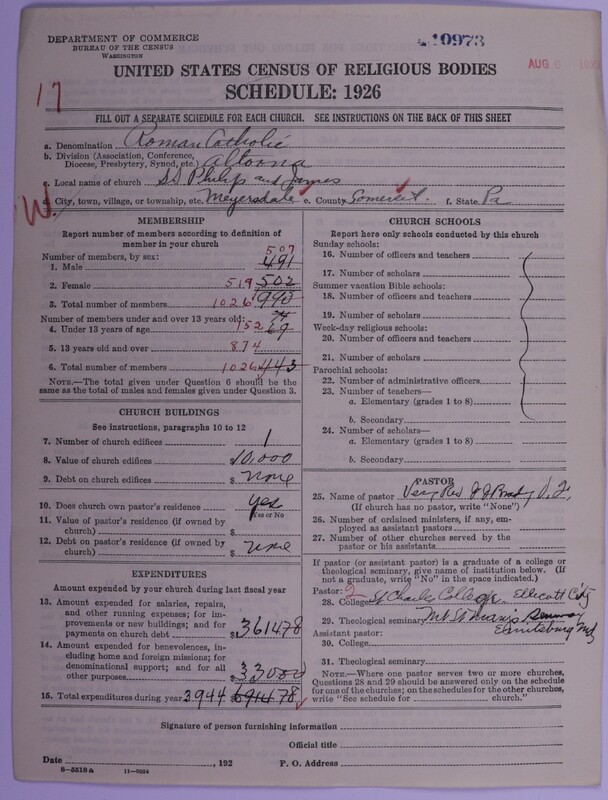 DEPARTMENT OF COMMERCE
BUREAU OF THE CENSUS
WASHINGTON
10973
AUG
17
UNITED STATES CENSUS OF RELIGIOUS BODIES
SCHEDULE: 1926
FILL OUT A SEPARATE SCHEDULE FOR EACH CHURCH. SEE INSTRUCTIONS ON THE BACK OF THIS SHEET
a. Denomination Roman Catholic
b. Division (Association, Conference,
Diocese, Presbytery, Synod, etc.) Altoona
c. Local name of church SS Philip and James
W. City, town, village, or township, etc. Meyersdale e. County Somerset. f. State Pa
MEMBERSHIP
Report number of members according to definition of
member in your church
Number of members, by sex: 507
1. Male 491
2. Female 519 502
3. Total number of members 1026 993
Number of members under and over 13 years old:
4. Under 13 years of age 152 69
5. 13 years old and over 874
6. Total number of members 1026 443
NOTE.—The total given under Question 6 should be the
same as the total of males and females given under Question 3.
CHURCH BUILDINGS
See instructions, paragraphs 10 to 12
7. Number of church edifices 1
8. Value of church edifices $ 10,000
9. Debt on church edifices $ none
10. Does church own pastor's residence? yes
Yes or No
11. Value of pastor's residence (if owned by
church) $
12. Debt on pastor's residence (if owned by
church) $ none
EXPENDITURES
Amount expended by your church during last fiscal year
13. Amount expended for salaries, repairs,
and other running expenses; for im-
provements or new buildings; and for
payments on church debt $ 361478
14. Amount expended for benevolences, in-
cluding home and foreign missions; for
denominational support; and for all
other purposes $ 33000
15. Total expenditures during year 3944 691478
CHURCH SCHOOLS
Report here only schools conducted by this church
Sunday schools:
16. Number of officers and teachers
17. Number of scholars
Summer vacation Bible schools:
18. Number of officers and teachers
19. Number of scholars
Week-day religious schools:
20. Number of officers and teachers
21. Number of scholars
Parochial schools:
22. Number of administrative officers
23. Number of teachers—
a. Elementary (grades 1 to 8)
b. Secondary
24. Number of scholars—
a. Elementary (grades 1 to 8)
b. Secondary
PASTOR
25. Name of pastor Very Rev J J Brady V. F.
(If church has no pastor, write "None")
26. Number of ordained ministers, if any, em-
ployed as assistant pastors
27. Number of other churches served by the
pastor or his assistants
If pastor (or assistant pastor) is a graduate of a college or
theological seminary, give name of institution below. (If
not a graduate, write "No" in the space indicated.)
Pastor: 2
28. College St Charles College. Ellicott City
29. Theological seminary Mt St Mary's Seminary
Emmitsburg Md
Assistant pastor:
30. College
31. Theological seminary
NOTE.—Where one pastor serves two or more churches,
Questions 28 and 29 should be answered only on the schedule
for one of the churches; on the schedules for the other churches,
write "See schedule for church."
Signature of person furnishing information
Official title
Date , 192 P. O. Address
8-5518a 11-9024